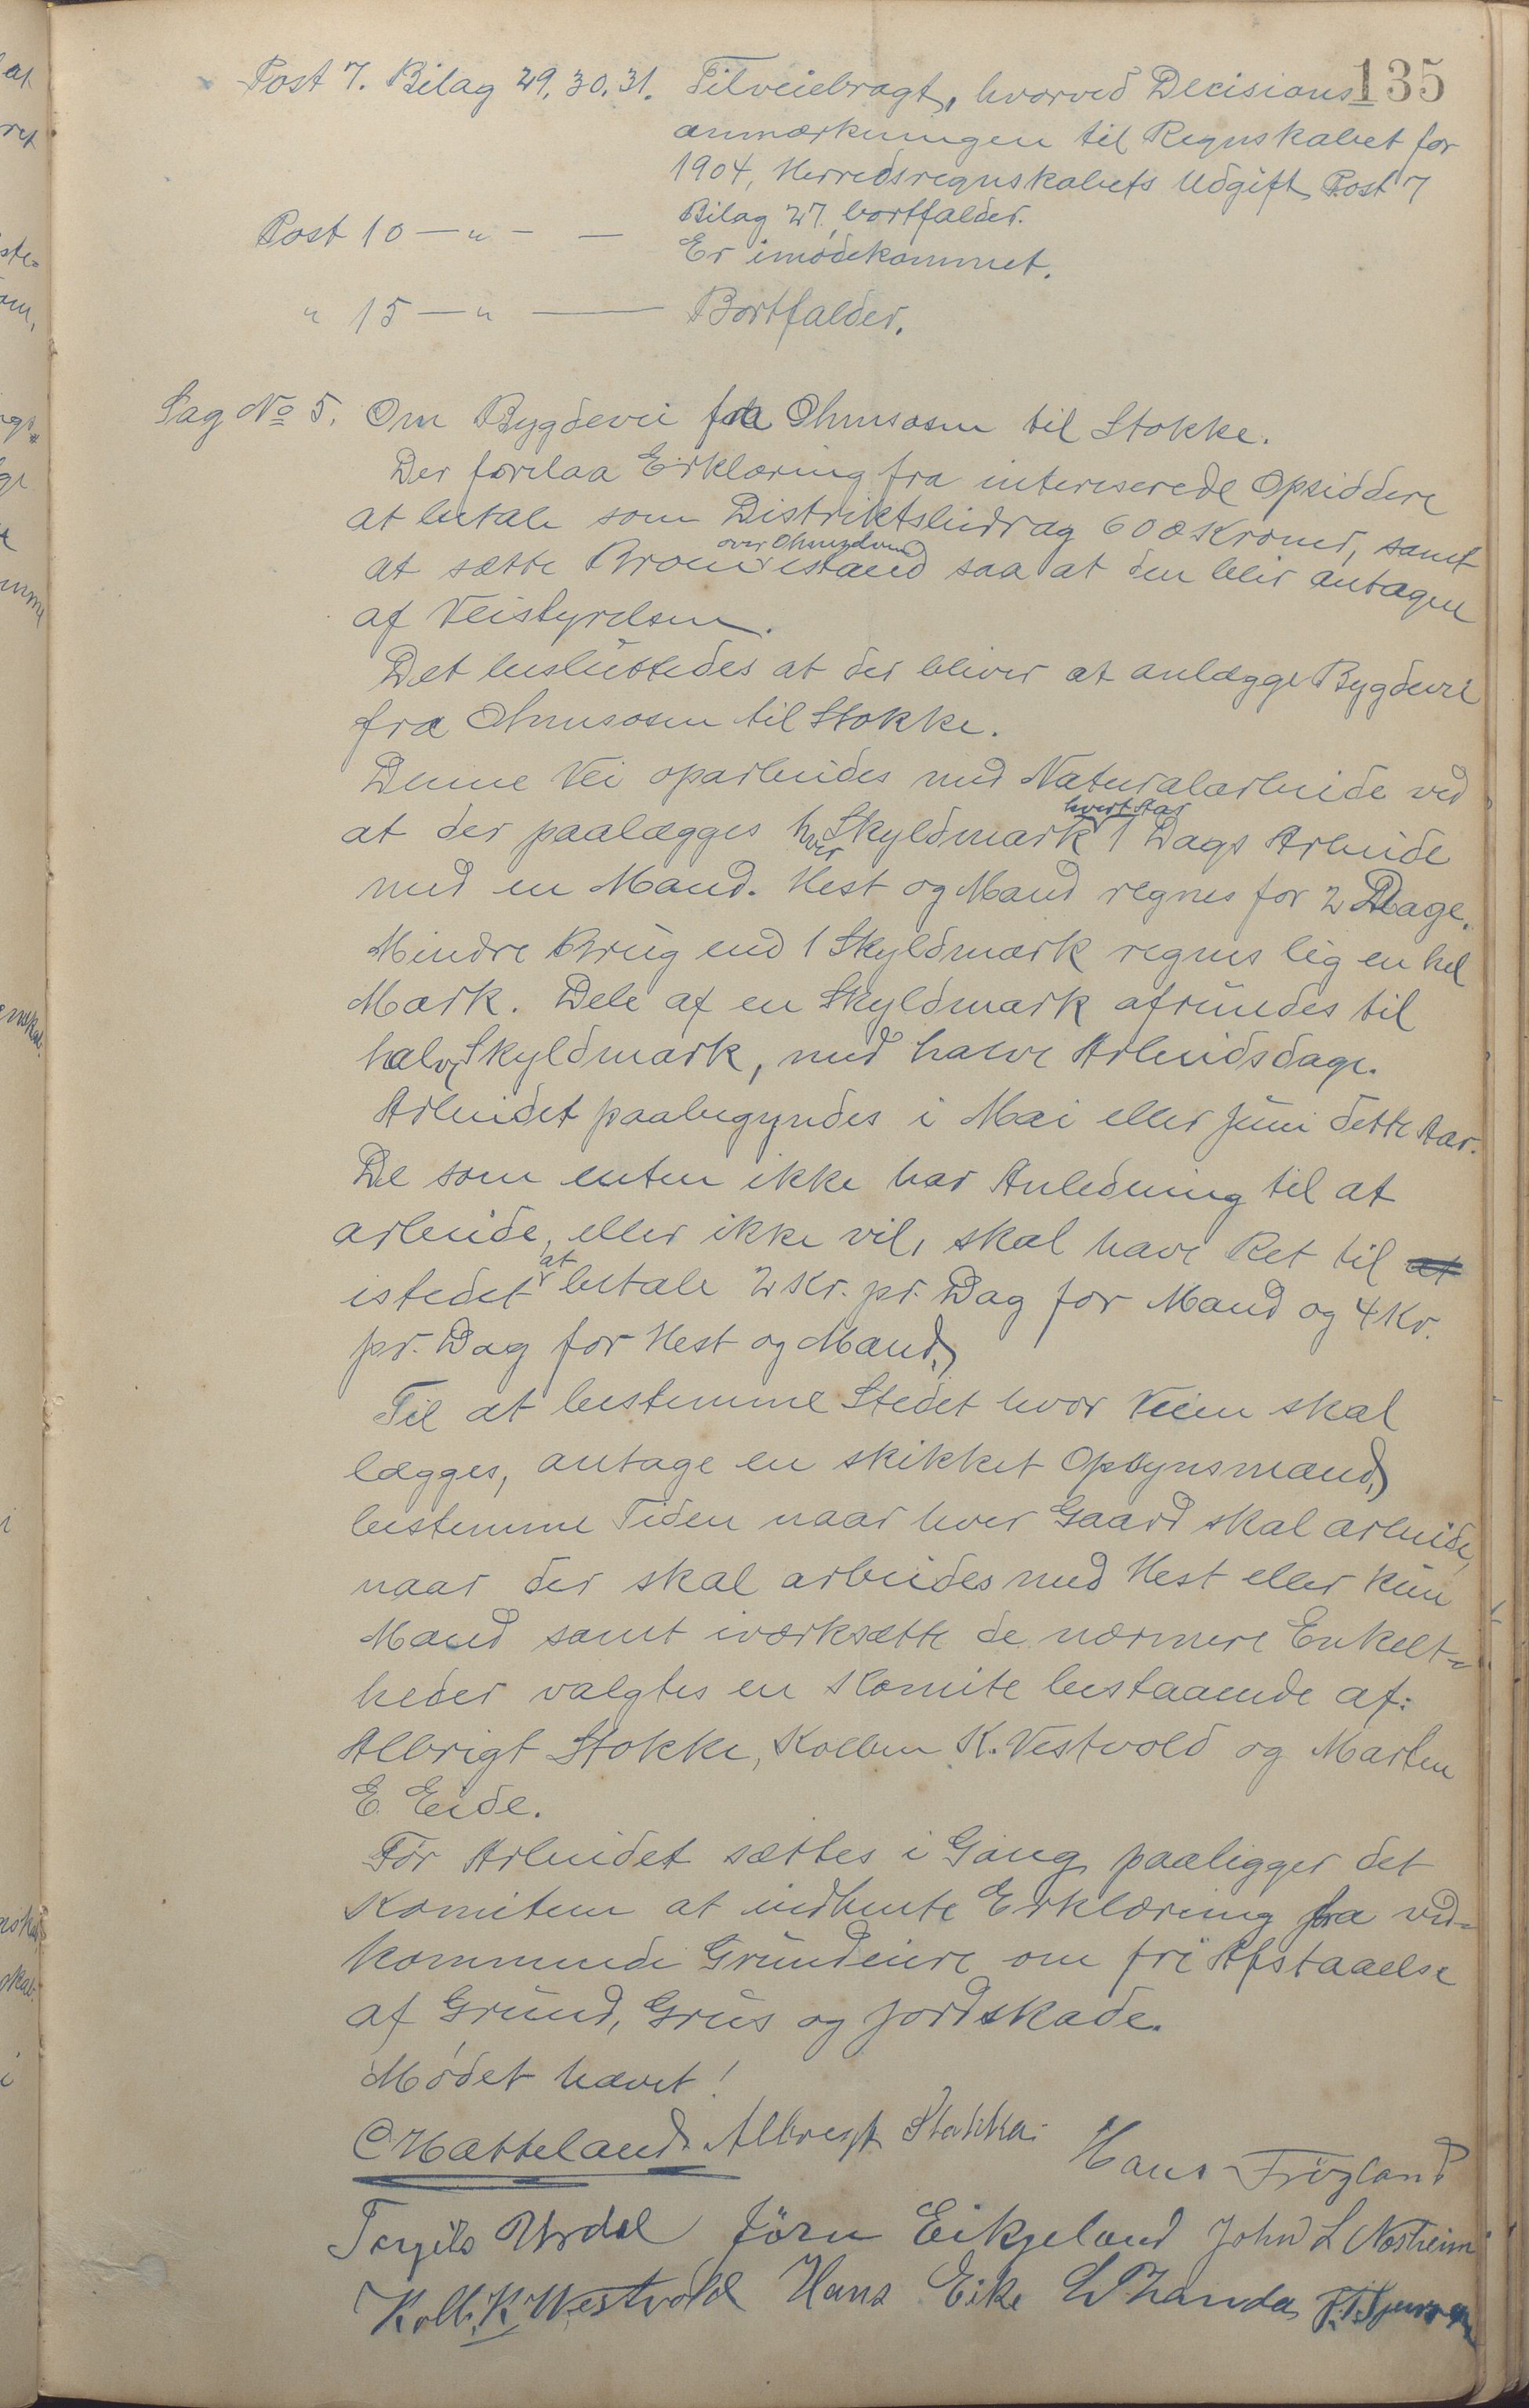 135
Post 7. Bilag 29. 30. 31. Tilveiebragt, hvorved Decisions
anmærkningen til Regnskabet for
1904, Herredsregnskabets Udgift Post 7
Bilag 27, bortfalder.
Post 10 — " — — Er imødekommet.
" 15 — " — Bortfalder.
Sag No 5. Om Bygdevei fra Ohmsosen til Stokke.
Der forelaa Erklæring fra intereserede Opsiddere
at betale som Distriktsbidrag 600 Kroner, samt
at sætte Broen over istand saa at den blir antagen
af Veistyrelsen.
Det besluttedes at der bliver at anlægge Bygdevei
fra Ohmsosen til Stokke.
Denne Vei oparbeides med Naturalarbeide ved
at der paalægges hver Skyldmark hvert Aar 1 Dags Arbeide
med en Mand. Hest og Mand regnes for 2 Dage.
Mindre Brug end 1 Skyldmark regnes lig en hel
Mark. Dele af en Skyldmark afrundes til
halv Skyldmark, med halve Arbeidsdage.
Arbeidet paabegyndes i Mai eller Juni dette Aar.
De som enten ikke har Anledning til at
arbeide, eller ikke vil, skal have Ret til at
istedet at betale 2 Kr. pr. Dag for Mand og 4 Kr.
pr. Dag for Hest og Mand.
Til at bestemme Stedet hvor Veien skal
lægges, antage en skikket Opsynsmand,
bestemme Tiden naar hver Gaard skal arbeide,
naar der skal arbeides med Hest eller kun
Mand samt iværksætte de nærmere Enkelt-
heder valgtes en Komite bestaaende af:
Albrigt Stokke, Kolben K. Vestvold og Marten
E. Eide.
Før Arbeidet sættes i Gang paaligger det
Komiteen at indhente Erklæring fra ved-
kommende Grundeiere om fri Afstaaelse
af Grund, Grus og Jordskade.
Mødet hævet!
O Hatteland. Albregt Stokka. Hans Frøyland
Torgils Urdal Jörn Eikjeland John L Nosheim
Kolb. K Westvold Hans Eike